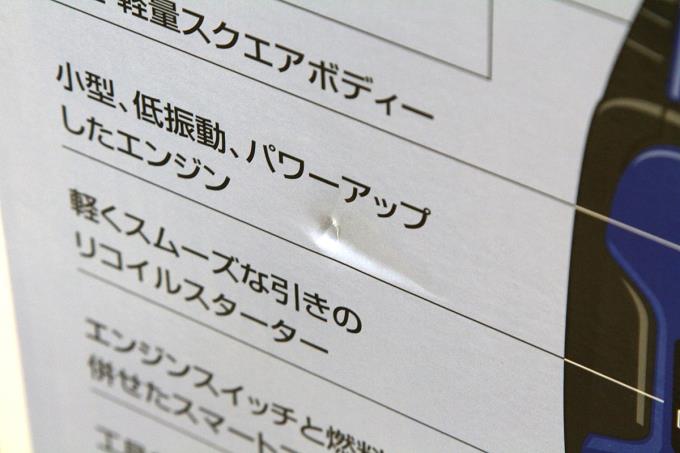 軽量スクエアボディー
小型、低振動、パワーアップ
したエンジン
軽くスムーズな引きの
リコイルスターター
エンジンスイッチと燃料
併せたスマート
工具